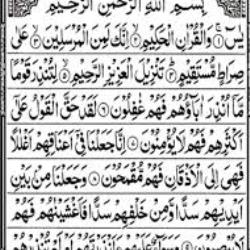 بِسْمِ اللّٰهِ الرَّحْمٰنِ الرَّحِيْمِ
يٰسٓ ۝١ وَالْقُرْاٰنِ الْحَكِيْمِ ۝٢ اِنَّكَ لَمِنَ الْمُرْسَلِيْنَ ۝٣ عَلٰى
صِرَاطٍ مُّسْتَقِيْمٍ ۝٤ تَنْزِيْلَ الْعَزِيْزِ الرَّحِيْمِ ۝٥ لِتُنْذِرَ قَوْمًا
مَّاۤ اُنْذِرَ اٰبَآؤُهُمْ فَهُمْ غٰفِلُوْنَ ۝٦ لَقَدْ حَقَّ الْقَوْلُ عَلٰۤى
اَكْثَرِهِمْ فَهُمْ لَا يُؤْمِنُوْنَ ۝٧ اِنَّا جَعَلْنَا فِيْۤ اَعْنَاقِهِمْ اَغْلٰلًا
فَهِيَ اِلَى الْاَذْقَانِ فَهُمْ مُّقْمَحُوْنَ ۝٨ وَجَعَلْنَا مِنْۢ بَيْنِ
اَيْدِيْهِمْ سَدًّا وَّمِنْ خَلْفِهِمْ سَدًّا فَاَغْشَيْنٰهُمْ فَهُمْ